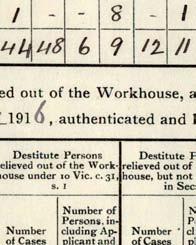 1 - - 8 - 1
44 48 6 9 12 11
ed out of the Workhouse, a
1916, authenticated and
Destitute Persons
relieved out of the Work-
house under 10 Vic. c. 31,
s. 1
Destitute
relieved out of
house, but not
in Sec
Number
of Cases
Number of
Persons, in-
cluding Ap-
plicant and
Number
of Cases
N
P
cl
pl